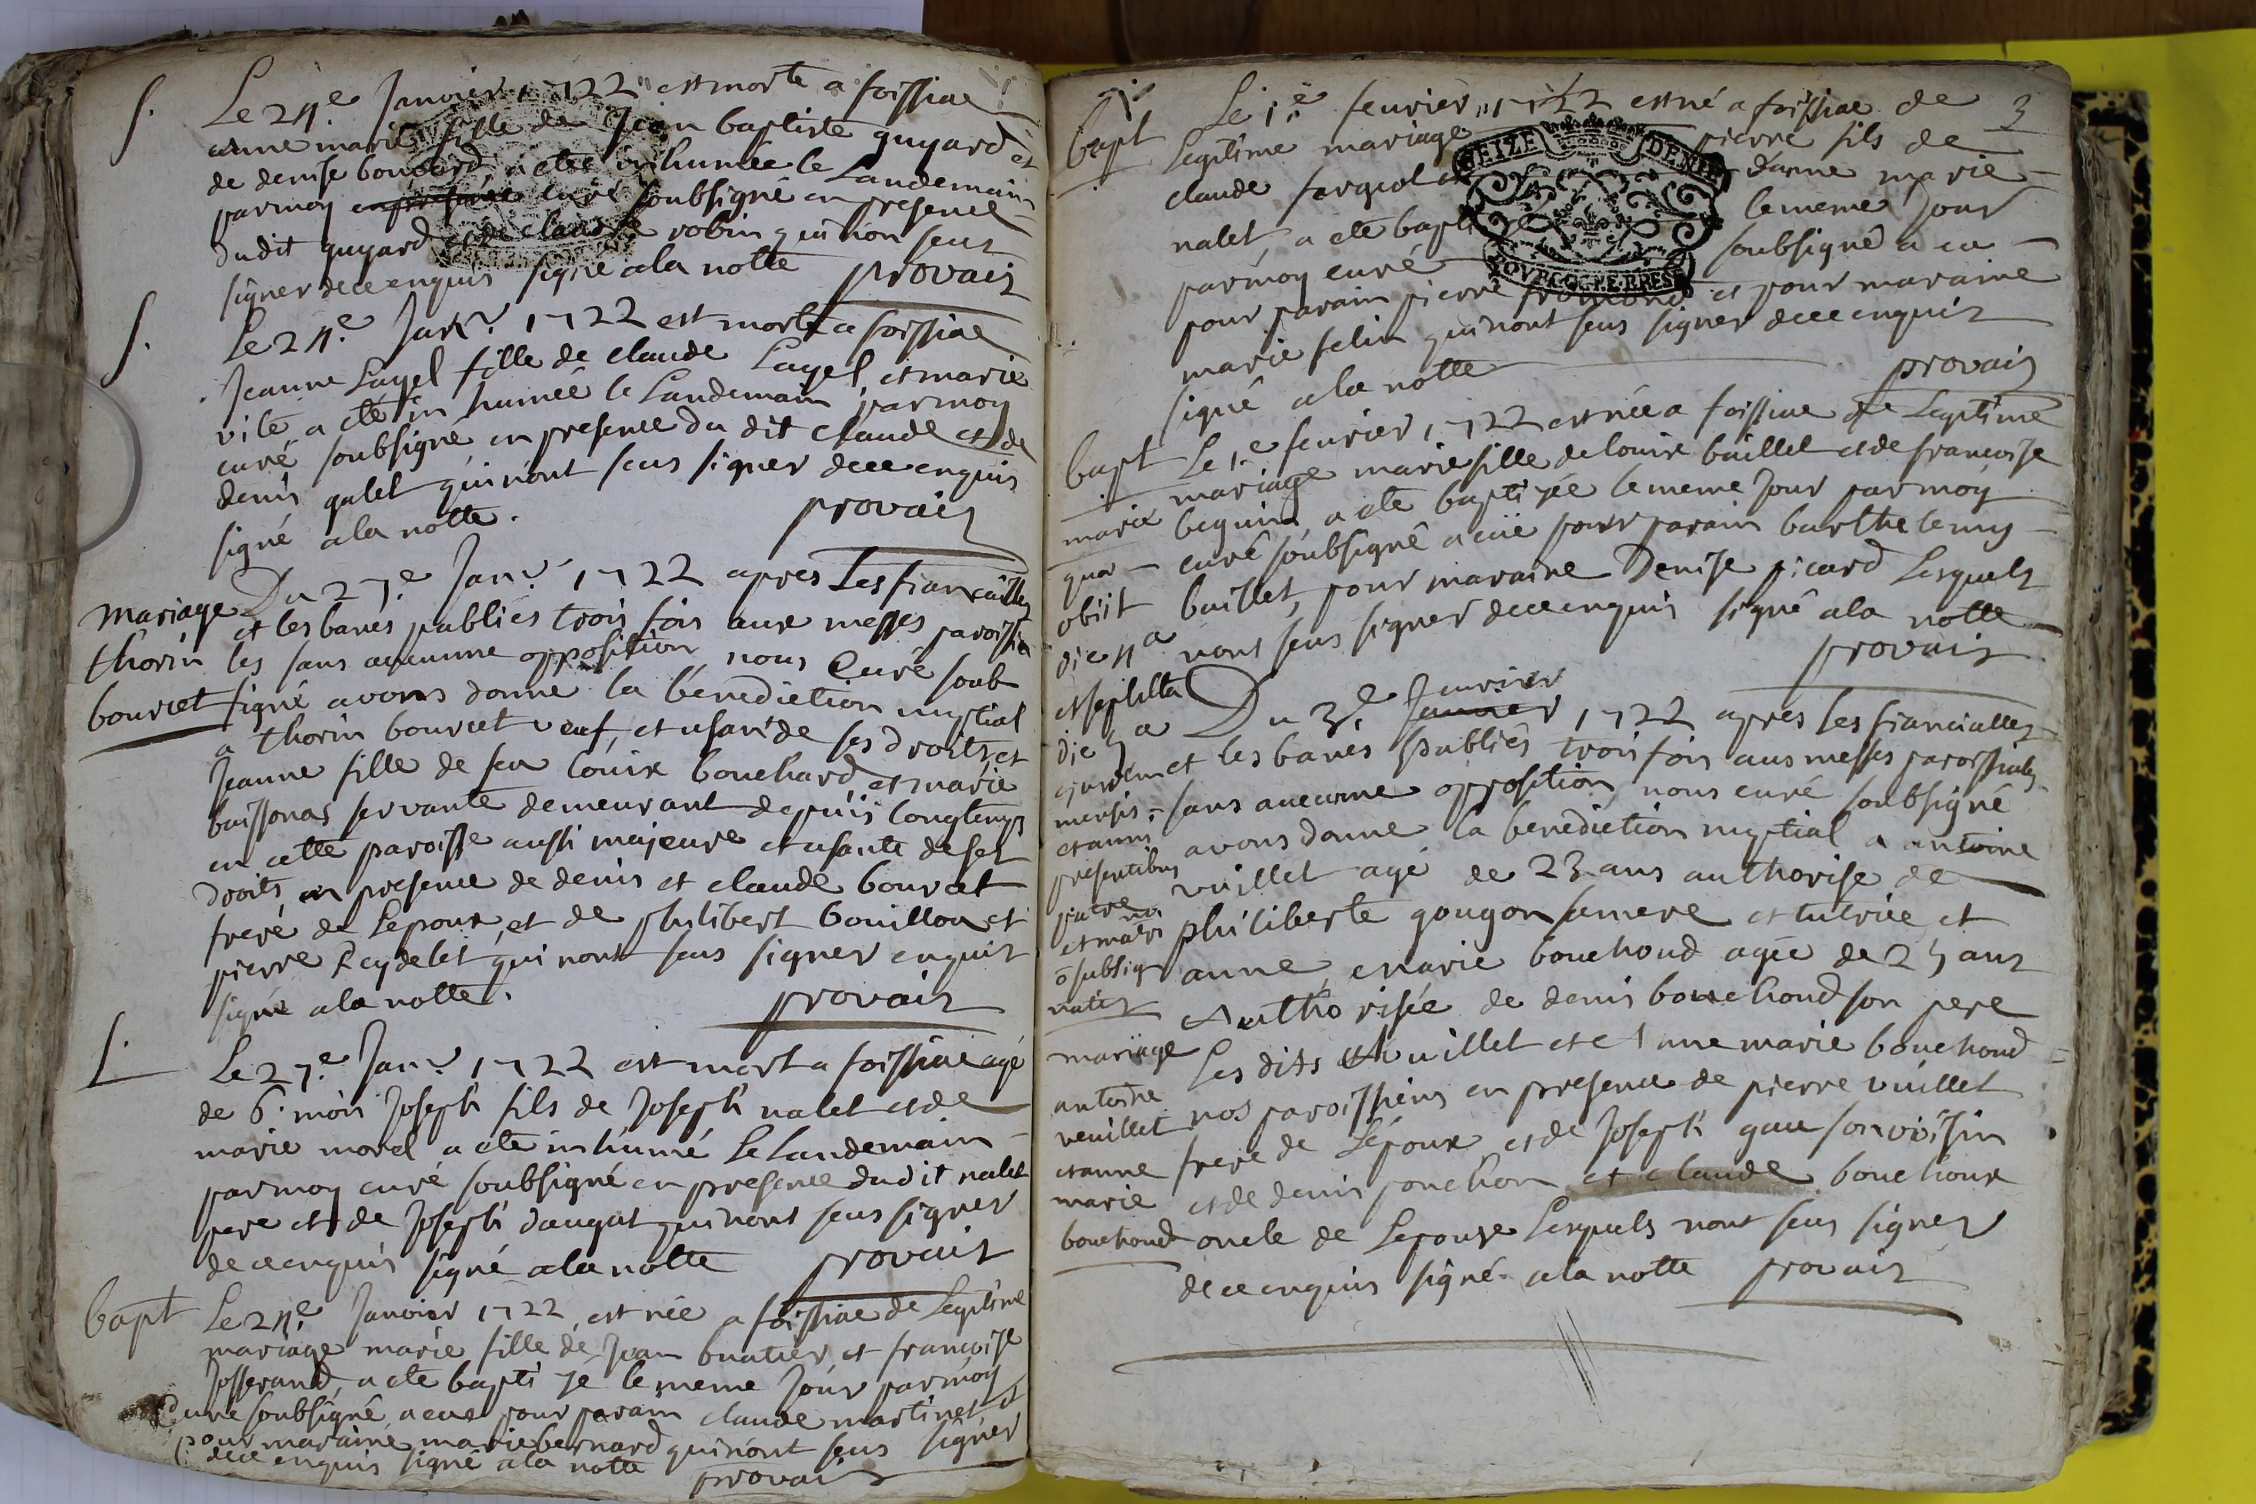 S. Le 24.e Janvier 1722 est morte a foissiae
anne marie fille de Jean baptiste guyard et
de denise bouvard, a eté inhumée le Landemain
parmoy curé soubsigné en presence
dudit guyard et de claude robin qui n'ont seus
signer de ce enquis signé ala notte provais
S. Le 24.e Janv. 1722 est morte a foissiae
Jeanne Layel fille de claude Layel, et marie
vite a eté in humée le Landemain parmoy
curé soubsigné en presence du dit claude et de
denis galet qui n'ont seus signer de ce enquis
signé ala notte. provais
mariage Du 27.e Janv. 1722 apres Les fiancailles
thorin et les bancs publiés trois fois aux messes paroissia
bourcet les sans aucunne opposition nous Curé soub
signé avons donne la benediction nuptial
a thorin bourcet veuf, et usant de ses droits, et
Jeanne fille de feu Louix bouchard, et marie
buissonas servante demeurant depuis longtemps
en cette paroisse aussi majeure et usante de ses
droits, en presence de denis et claude bourcet
frere de Lepoux, et de philibert bouillon et
pierre Reydelet qui n'ont seus signer enquis
signé ala notte. provais
S. Le 27.e Janv. 1722 est mort a foissiae agé
de 6. mois Joseph fils de Joseph nalet et de
marie morel a eté inhumé Le Landemain
parmoy curé soubsigné en presence dudit nalet
pere et de Joseph daugat qui n'ont seus signer
de ce enquis signé ala notte provais
bapt Le 24.e Janvier 1722 est née a foissiae de Legitime
mariage marie fille de Jean buatier et francoise
Josserand, a eté bapti zé le meme Jour parmoy
Curé soubsigné a eue pour parain claude martinet et
pour maraine marie bernard qui n'ont seus signer
de ce enquis signé ala notte provais
3
bapt Le 1.e fevrier 1722 est né a foissiae de
Legitime mariage pierre fils de
claude fargeot et d'anne marie
nalet, a eté bapti le meme Jour
parmoy curé soubsigné a eu
pour parain pierre fromond et pour maraine
marie felix qui n'ont seus signer de ce enquis
signé ala notte provais
SEIZE DENIE
BOVRGOGNE BRESSE
bapt Le 1.e fevrier 1722 est née a foissiae de Legitime
mariage marie fille de louix buillet et de francoise
marie beguin, a eté baptizée le meme Jour parmoy
qua curé soubsigné a eüe pour parain barthelemy
obiit buillet, pour maraine Denise picard Lesquels
die 4a n'ont seus signer de ce enquis signé ala notte
provais
et sepulta
die 5a
ejusdem
mensis
et anni
presentibus
patre
et matri
subsig
natis
fevrier
Du 3.e Janvier 1722 apres les fiancialles
et les bancs publiés trois fois aus messes paroissiales
sans aucunne opposition, nous curé soubsigné
avons donne la benediction nuptial a antoine
vuillet agé de 23 ans authorise de
philiberte gougon sa mere et tutrice, et
anne, marie bouchond agée de 25 ans
Authorisée de denis bouchond son pere
mariage Les dits vuillet et anne marie bouchond
antoine nos paroissiens en presence de pierre vuillet
veuillet frere de Lépoux et de Joseph gau son voisin
et anne et de denis ponchon et claude bouchoux
marie oncle de Lepouse Lesquels n'ont seus signer
bouchond de ce enquis signé ala notte provais